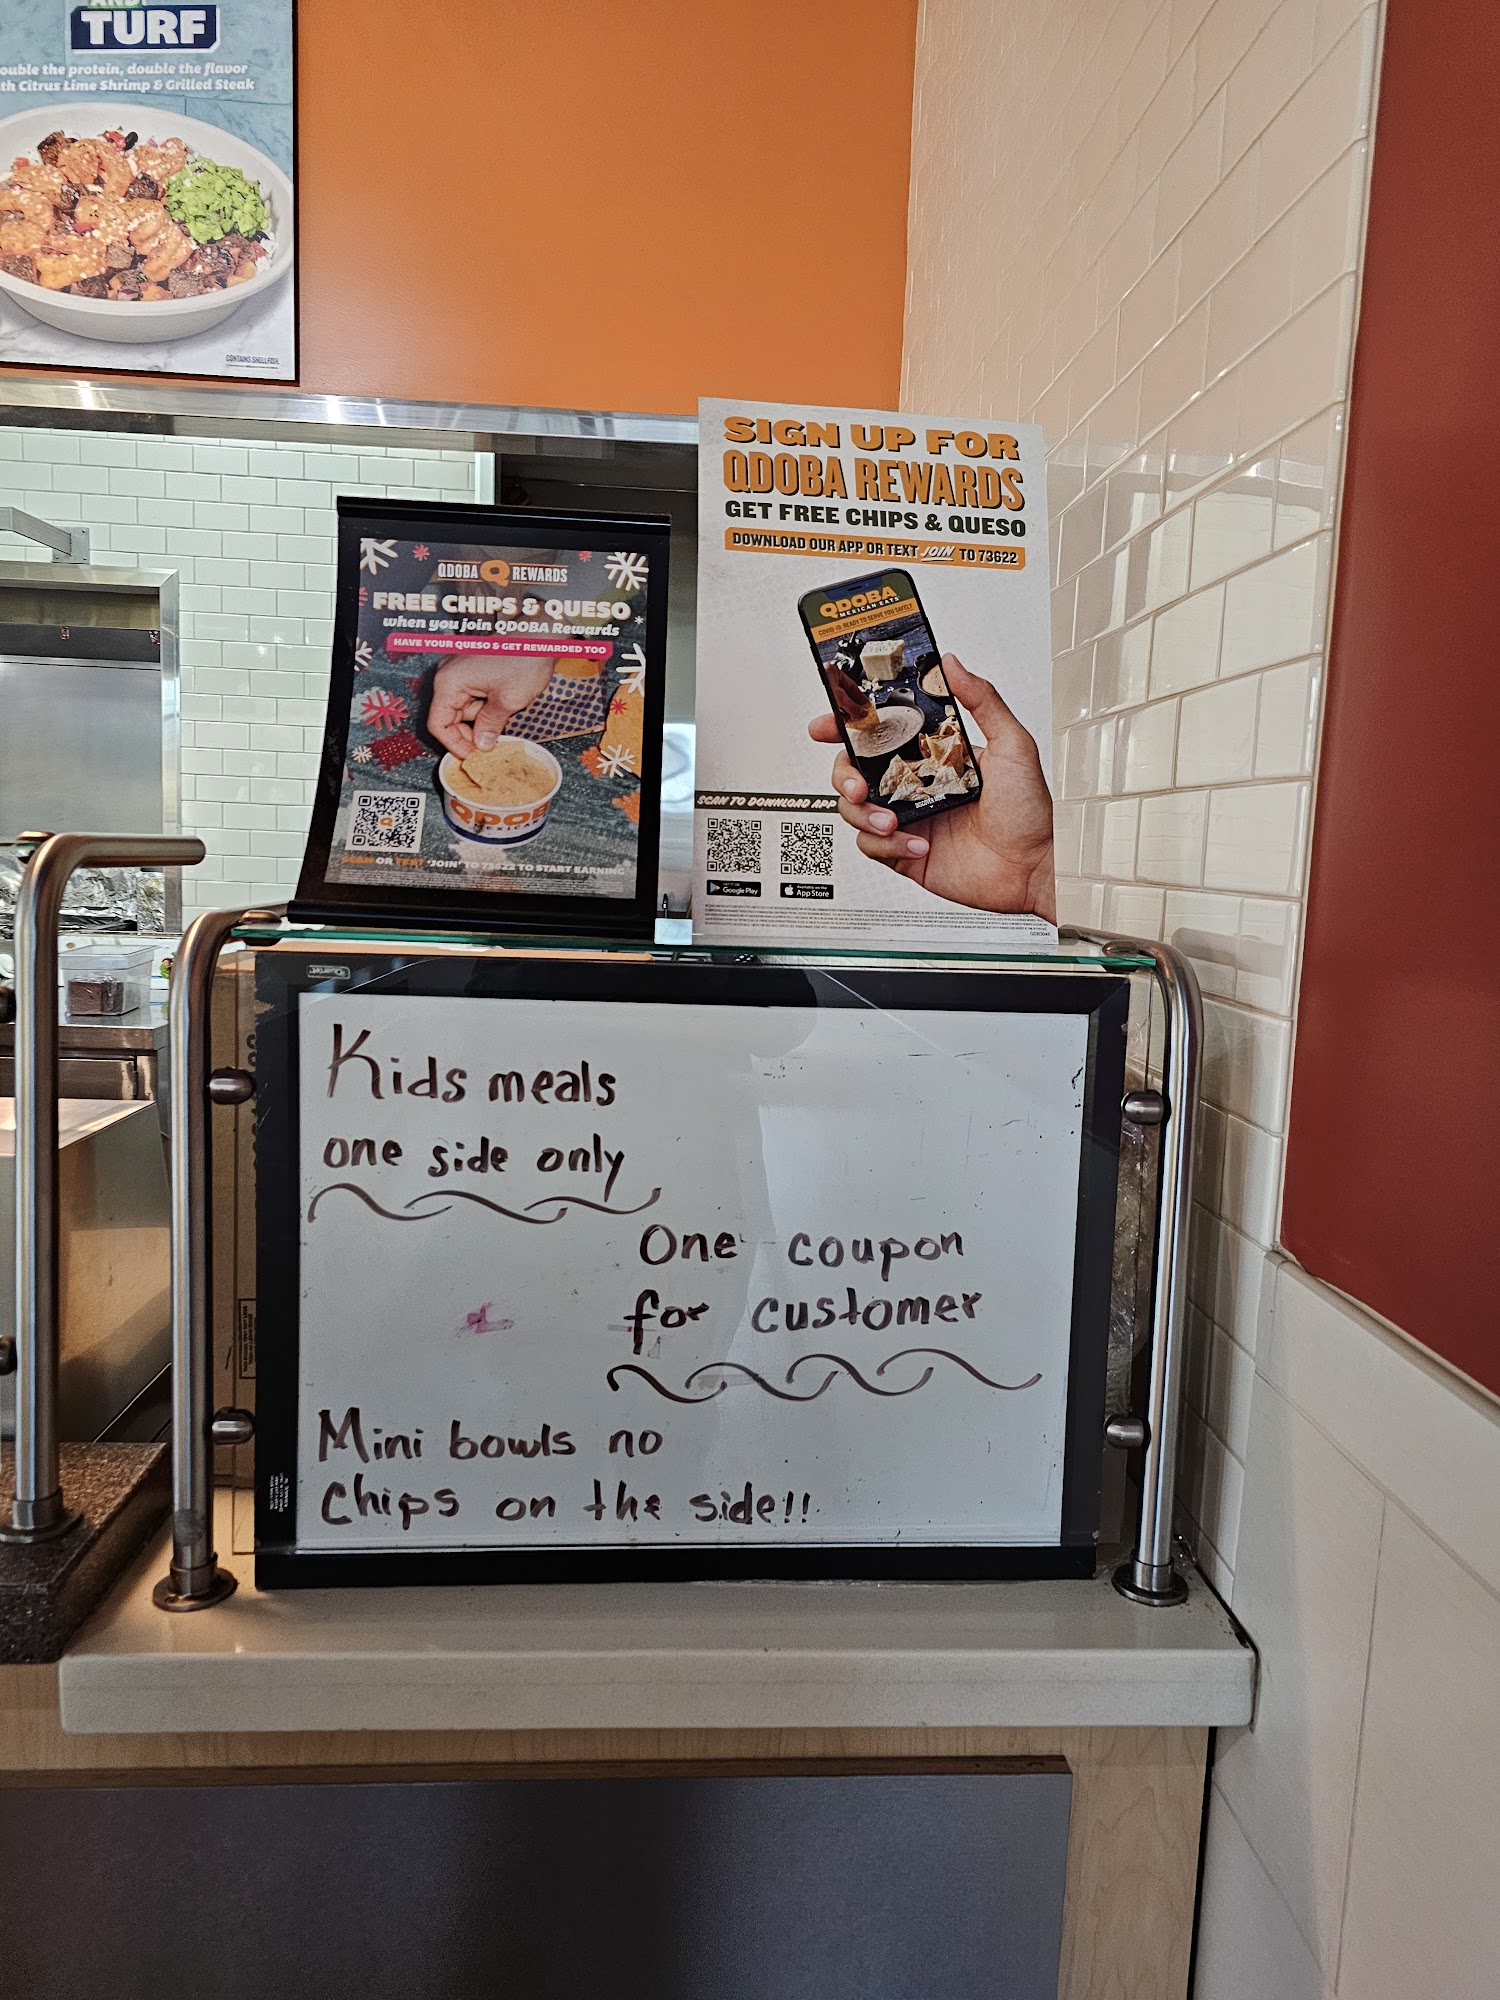 TURF
ouble the protein, double the flavor
th Citrus Lime Shrimp & Grilled Steak
CONTAINS SHELLFISH.
SIGN UP FOR
QDOBA REWARDS
GET FREE CHIPS & QUESO
DOWNLOAD OUR APP OR TEXT JOIN TO 73622
QDOBA
MEXICAN EATS
COVID-19: READY TO SERVE YOU SAFELY
DISCOVER MORE
SCAN TO DOWNLOAD APP
GET IT ON
Google Play
Available on the
App Store
QDOBA Q REWARDS
FREE CHIPS & QUESO
when you join QDOBA Rewards
HAVE YOUR QUESO & GET REWARDED TOO
QDOB
MEXICAN
SCAN OR TEXT 'JOIN' TO 73622 TO START EARNING
Quartet
Kids meals
one side only
One coupon
for customer
Mini bowls no
Chips on the side!!